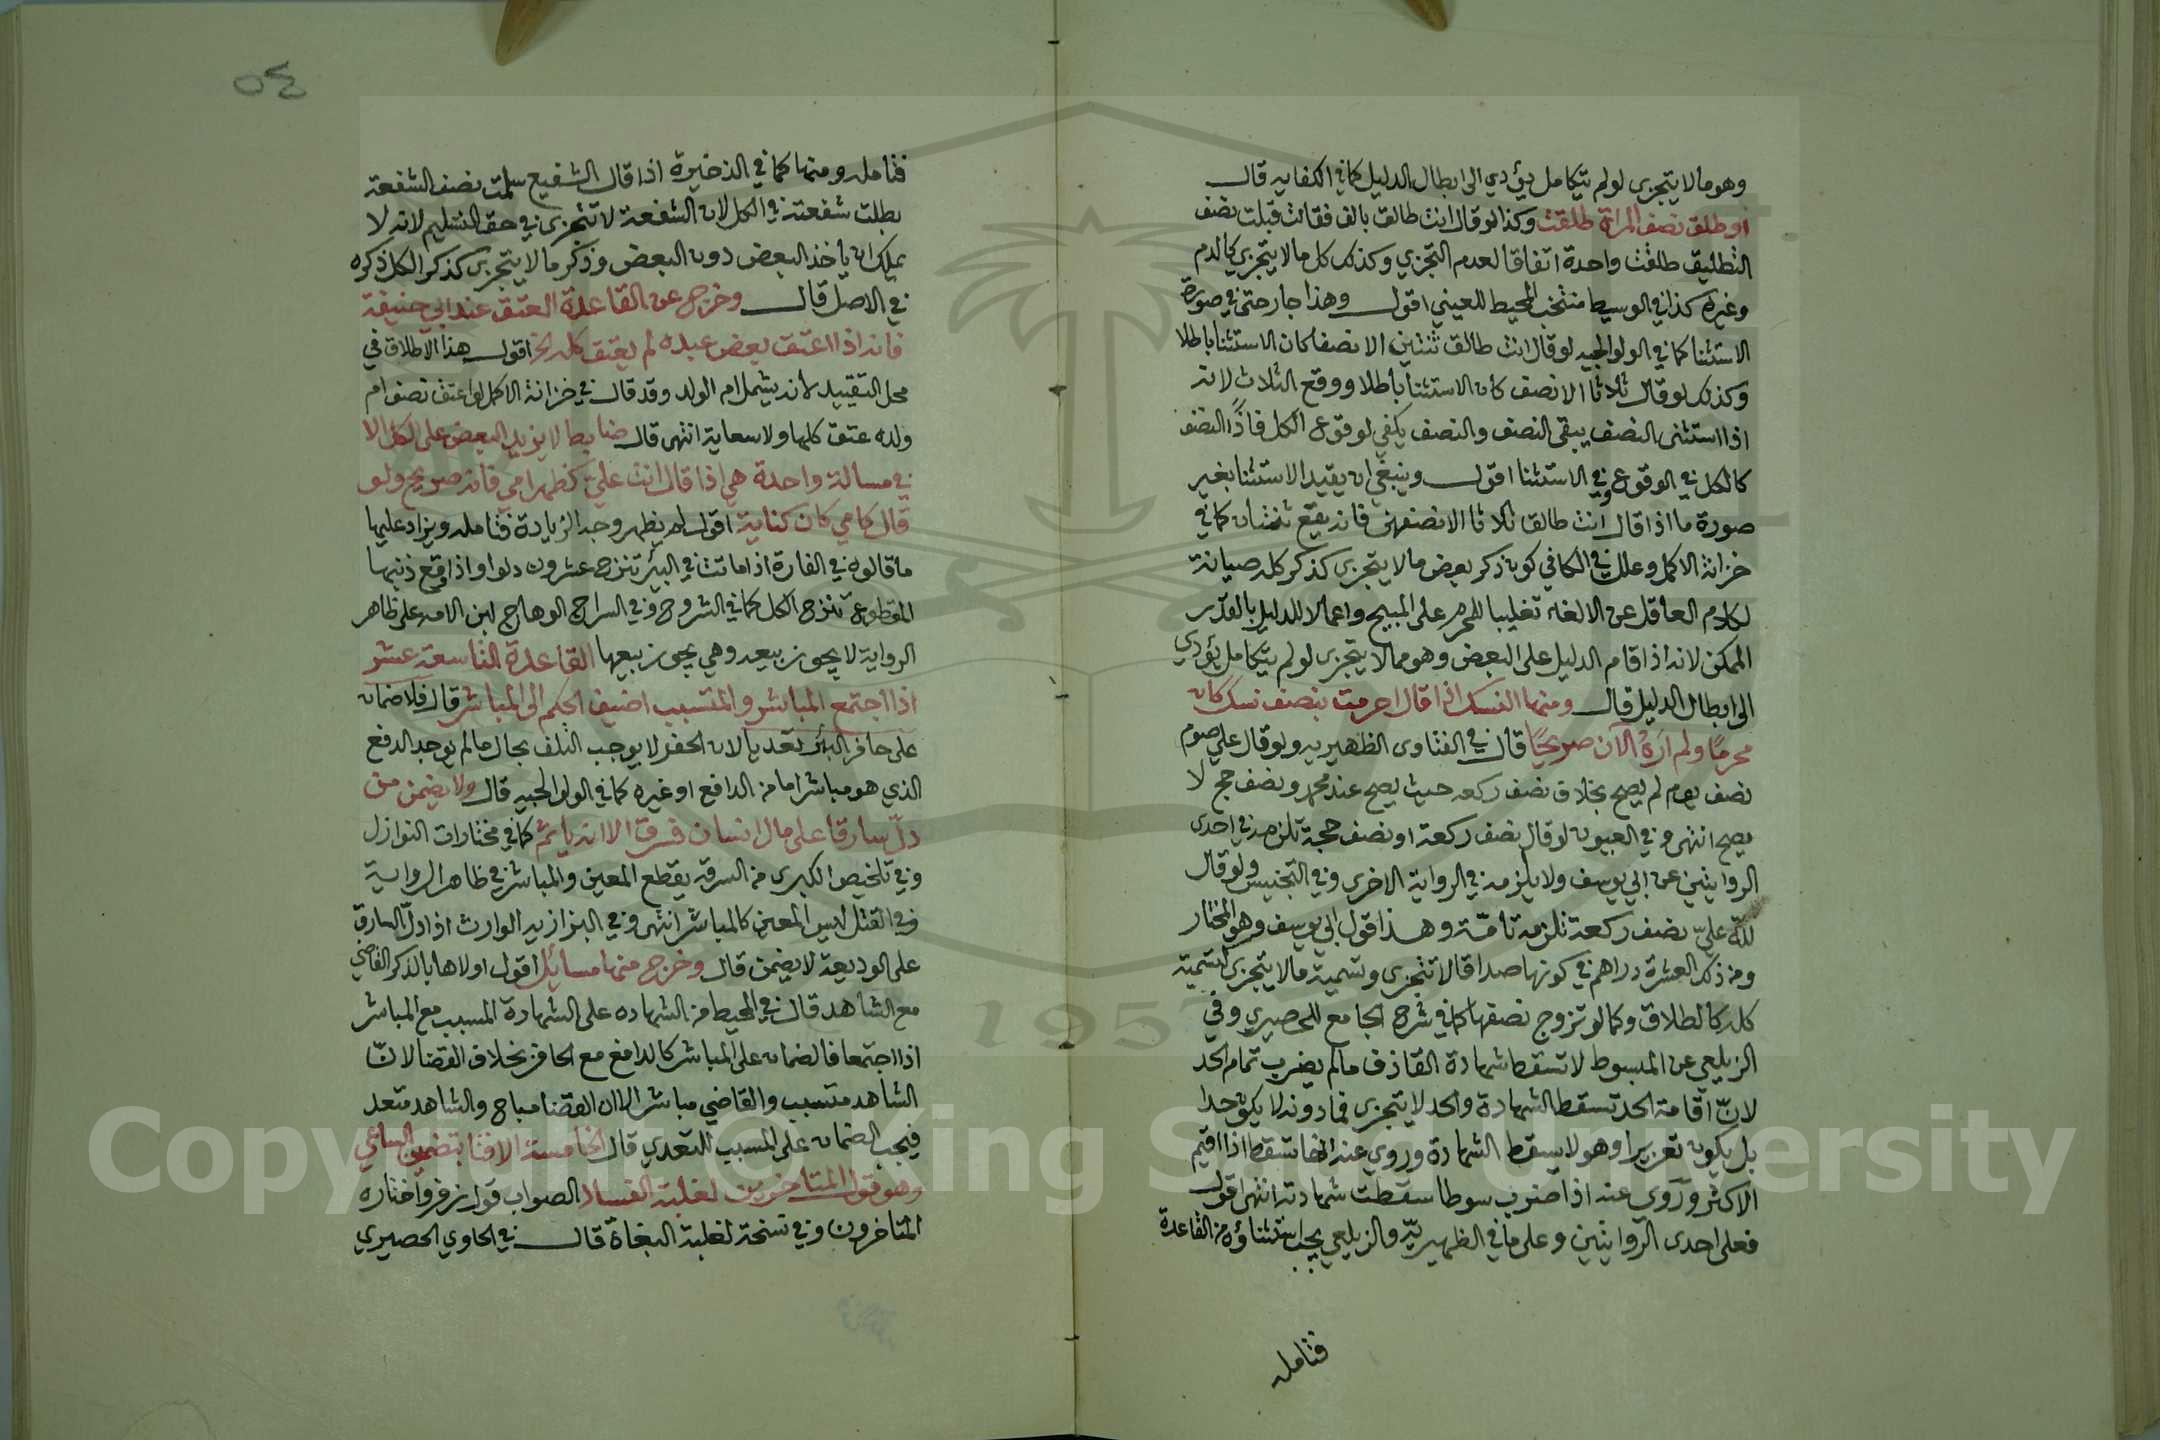 وهو مالا يتجزى لو لم يتكامل يؤدي الى ابطال الدليل كما في الكفايه قال
او طلق نصف المراة طلقت وكذا لو قال انت طالق بالف فقالت قبلت نصف
التطليق طلقت واحدة اتفاقا لعدم التجزي وكذلك كل ما لا يتجزى كالدم
وغيره كذا في الوسيط منتخب المحيط للعيني اقول وهذا جار حتى في صورة
الاستثنا كما في الولوالجيه لو قال انت طالق ثنتين الا نصفا كان الاستثنا باطلا
وكذلك لو قال ثلاثا الا نصف كان الاستثنا باطلا ووقع الثلاث لانه
اذا استثنى النصف يبقى النصف والنصف يكفي لوقوع الكل فاذًا النصف
كالكل في الوقوع وفي الاستثنا اقول وينبغي ان يقيد الاستثنا بغير
صورة ما اذا قال انت طالق ثلاثا الا نصفهن فانه يقع ثنتان كما في
خزانة الاكمل وعلل في الكافي كون ذكر بعض ما لا يتجزى كذكر كله صيانة
لكلام العاقل عن الالغا تغليبا للمحرم على المبيح واعمالا للدليل بالقدر
الممكن لانه اذا قام الدليل على البعض وهو مما لا يتجزى لو لم يتكامل يؤدي
الى ابطال الدليل قال ومنها النسك اذا قال احرمت بنصف نسك كان
محرمًا ولم اره الآن صريحًا قال في الفتاوى الظهيريه ولو قال علي صوم
نصف يوم لم يصح بخلاف نصف ركعه حيث يصح عند محمد ونصف حج لا
يصح انتهى وفي العيون لو قال نصف ركعة او نصف حجة تلزمه في احدى
الروايتين عن ابي يوسف ولا يلزمه في الرواية الاخرى وفي التجنيس ولو قال
لله عليّ نصف ركعة تلزمه تامّة وهذا قول ابي يوسف وهو المختار
ومن ذلك العشرة دراهم في كونها صداقا لا تتجزى وتسمية ما لا يتجزى كتسمية
كله كالطلاق وكما لو تزوج نصفها كما في شرح الجامع للحصيري وفي
الزيلعي عن المبسوط لا تسقط شهادة القاذف ما لم يضرب تمام الحد
لانّ اقامة الحد تسقط الشهادة والحد لا يتجزى فما دونه لا يكون حدا
بل يكون تعزيرا وهو لا يسقط الشهادة وروي عنه انها تسقط اذا اقيم
الاكثر وروى عنه اذا ضرب سوطا سقطت شهادته انتهى اقول
فعلى احدى الروايتين وعلى ما في الظهيريّه والزيلعي يجب استثناؤه من القاعدة
فتامله
٥٤
فتامله ومنها كما في الذخيرة اذا قال الشفيع سلمت نصف الشفعة
بطلت شفعته في الكل لان الشفعة لا تتجزى في حق التسليم لانه لا
يملك ان ياخذ البعض دون البعض وذكر ما لا يتجزى كذكر الكل ذكره
في الاصل قال وخرج عن القاعدة العتق عند ابي حنيفة
فانه اذا اعتق بعض عبده لم يعتق كله الخ اقول هذا الاطلاق في
محل التقييد لانه يشمل ام الولد وقد قال في خزانة الاكمل لو اعتق نصف ام
ولده عتق كلها ولا سعاية انتهى قال ضابط لا يزيد البعض على الكل الا
في مسالة واحدة هي اذا قال انت عليّ كظهر امي فانه صريح ولو
قال كامي كان كناية اقول لم يظهر وجه الزيادة فتامله ويزاد عليها
ما قالوه في الفارة اذا ماتت في البئر تنزح عشرون دلوا واذا وقع ذنبها
المقطوع تنزح الكل كما في الشروح وفي السراج الوهاج لبن الامة على ظاهر
الرواية لا يجوز بيعه وهي يجوز بيعها القاعدة التاسعة عشر
اذا اجتمع المباشر والمتسبب اضيف الحكم الى المباشر قال فلا ضمان
على حافر البئر تعديا لان الحفر لا يوجب التلف بحال ما لم يوجد الدفع
الذي هو مباشر اما من الدافع او غيره كما في الولوالجيه قال ولا يضمن من
دلّ سارقا على مال انسان فسرق الا انه ياثم كما في مختارات النوازل
وفي تلخيص الكبرى من السرقه يقطع المعين والمباشر في ظاهر الرواية
وفي القتل ليس المعين كالمباشر انتهى وفي البزازيه الوارث اذا دلّ السارق
على الوديعة لا يضمن قال وخرج منها مسايل اقول اولاها بالذكر القاضي
مع الشاهد قال في المحيط من الشهاده على الشهادة المسبب مع المباشر
اذا اجتمعا فالضمان على المباشر كالدافع مع الحافر بخلاف القضا لانّ
الشاهد متسبب والقاضي مباشر الا ان القضا مباح والشاهد متعد
فيجب الضمان على المسبب للتعدي قال الخامسة الافتا بتضمين الساعي
وهو قول المتاخرين لغلبة الفساد الصواب قول زفر واختاره
المتاخرون وفي نسخة لغلبة البغاة قال في الحاوي الحصيري
1957
Copyright © King Saud University